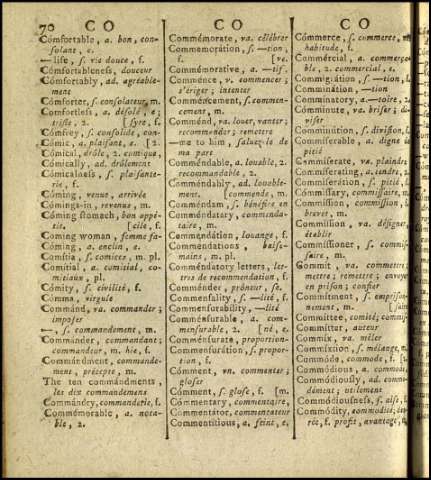 70 CO CO CO
Cómfortable, a. bon, con-
solant, e.
— life, s. vie douce, f.
Cómfortableness, douceur
Cómfortably, ad. agréable-
ment
Cómforter, s. consolateur, m.
Cómfortless, a. désolé, e;
triste, 2. [syre, f.
Cómfrey, s. consolide, con-
Cómic, a. plaisant, e. [2.
Cómical, drôle, 2. comique,
Cómically, ad. drôlement
Cómicalness, s. plaisante-
rie, f.
Cóming, venue, arrivée
Cómings-in, revenus, m.
Cóming stomach, bon appé-
tit. [cile, f.
Cóming woman, femme fa-
Cóming, a. enclin, e.
Comítia, s. comices, m. pl.
Comitial, a. comitial, co-
mitiaux, pl.
Cómity, s. civilité, f.
Cómma, virgule
Commánd, va. commander;
imposer
—, s. commandement, m.
Commánder, commandant;
commandeur, m. hie, f.
Commándment, commande-
ment, précepte, m.
The ten commándments,
les dix commandemens
Commándry, commanderie, f.
Commémorable, a. nota-
ble, 2.
Commémorate, va. célébrer
Commemorátion, s. —tion,
f. [ve.
Commémorative, a. —tif,
Comménce, v. commencer;
s'ériger; intenter
Comméncement, s. commen-
cement, m.
Comménd, va. louer, vanter;
recommander; remettre
—me to him, saluez-le de
ma part
Comméndable, a. louable, 2.
recommandable, 2.
Comméndably, ad. louable-
ment. [commende, m.
Comméndam, s. bénéfice en
Comméndatary, commenda-
taire, m.
Commendátion, louange, f.
Commendátions, baise-
mains, m. pl.
Comméndatory letters, let-
tres de recommendation, f.
Comménder, prôneur, se.
Commensálity, s. —lité, f.
Commensurabílity, —lité
Comménsurable, a. com-
mensurable, 2. [né, e.
Comménsurate, proportion-
Commensurátion, s. propor-
tion, f.
Cómment, vn. commenter;
gloser
Cómment, s. glose, f. [m.
Cómmentary, commentaire,
Commentátor, commentateur
Commentítious, a. feint, e.
Cómmerce, s. commerce,
habitude, f.
Commércial, a. commerça-
ble, 2. commercial, e.
Commigrátion, s. —tion,
Comminátion, —tion
Comminatory, a. —toire, 2.
Comminute, va. briser; di-
viser
Comminútion, s. division, f.
Commíserable, a. digne de
pitié
Commíserate, va. plaindre
Commíserating, a. tendre,
Commiserátion, s. pitié,
Cómmissary, commissaire, m.
Commíssion, commission,
brevet, m.
Commíssion, va. désigner,
établir
Commíssioner, s. commis-
saire, m.
Commít, va. commettre;
mettre; remettre; envoyer
en prison; confier
Commítment, s. emprison-
nement, m.
Commíttee, comité; commis-
Commítter, auteur
Commíx, va. mêler
Commíxtion, s. mélange, m.
Commóde, commode, f.
Commódious, a. commode,
Commódiously, ad. commo-
dément; utilement
Commódiousness, s. aise, f.
Commódity, commodité, den-
rée, f. profit, avantage,